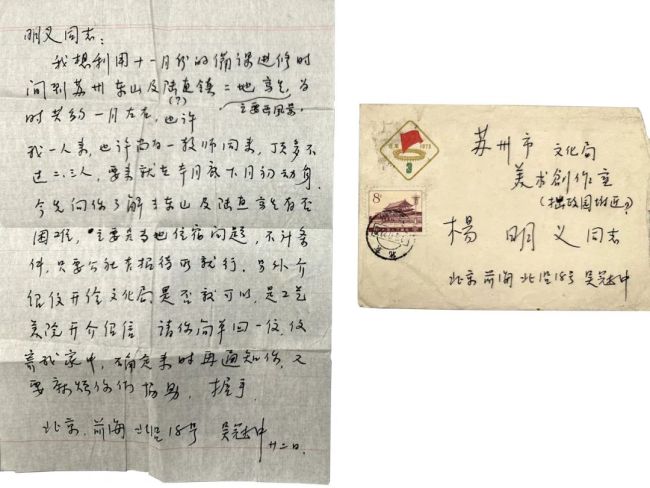 明义同志：
我想利用十一月份的备课进修时
间到苏州东山及陆直镇二地写生，为
(?)
主要画风景
时共约一月左右，也许
我一人来，也许尚有一教师同来，顶多不
过二、三人，要来就在本月底下月初动身，
今先向你了解东山及陆直写生有否
困难，主要是当地住宿问题，不计条
件，只要公社有招待所就行。另外介
绍信开给文化局是否就可以，是工艺
美院开介绍信，请你简单回一信，信
寄我家中，确定来时再通知你，又
要麻烦你们协助，握手
北京，前海北沿18号 吴冠中
廿二日
苏州市文化局
美术创作室
(拙政园附近?)
杨明义同志
北京前海北沿18号吴冠中
1973
3
8